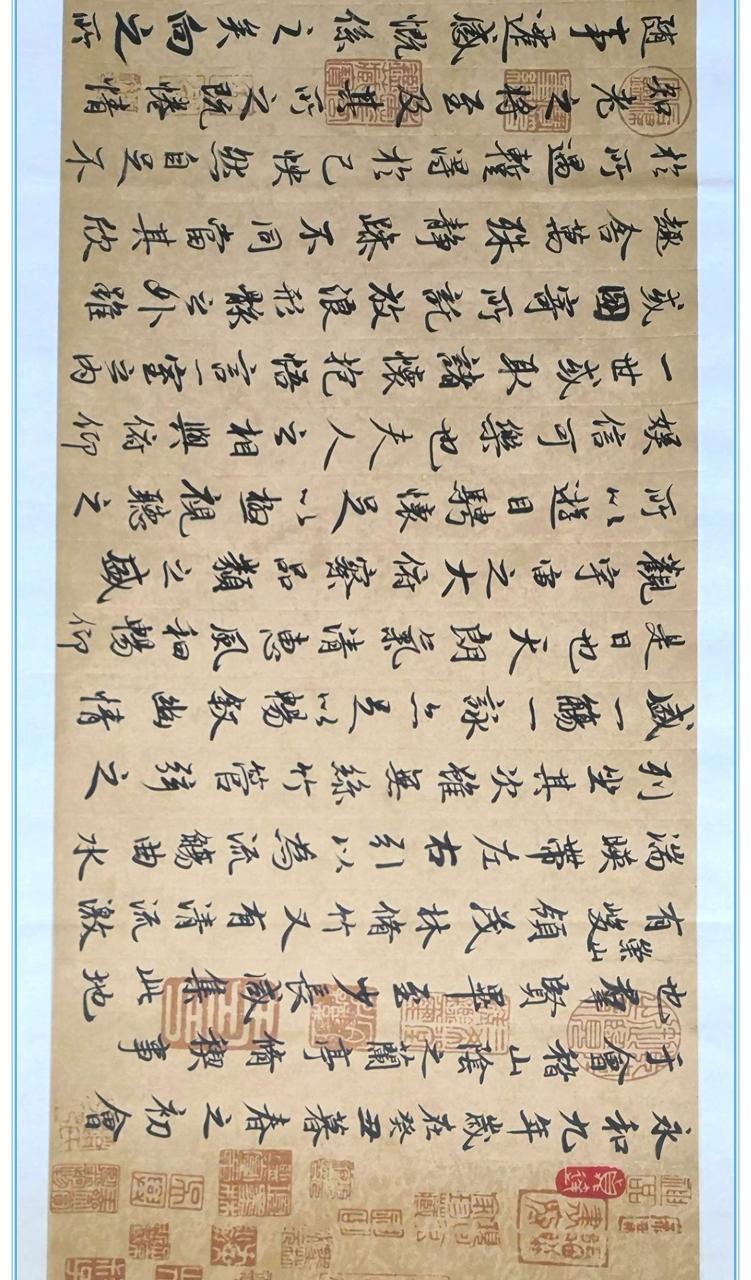 永和九年歲在癸丑暮春之初會
于會稽山陰之蘭亭脩禊事
也羣賢畢至少長咸集此地
有崇山峻領茂林脩竹又有清流激
湍暎帶左右引以為流觴曲水
列坐其次雖無絲竹管弦之
盛一觴一詠亦足以暢敘幽情
是日也天朗氣清惠風和暢仰
觀宇宙之大俯察品類之盛
所以遊目騁懷足以極視聽之
娛信可樂也夫人之相與俯仰
一世或取諸懷抱悟言一室之內
或因寄所託放浪形骸之外雖
趣舍萬殊靜躁不同當其欣
於所遇蹔得於己怏然自足不
知老之將至及其所之既惓情
隨事遷感慨係之矣向之所